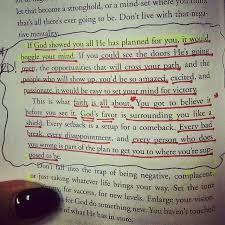 let that become a stronghold, or a mind-set where you think
that's all there's ever going to be. Don't live with that neg-
ative mentality.
If God showed you all He has planned for you, it would
boggle your mind. If you could see the doors He's going
open, the opportunities that will cross your path, and the
people who will show up, you'd be so amazed, excited, and
passionate, it would be easy to set your mind for victory.
This is what faith is all about. You got to believe it
before you see it. God's favor is surrounding you like a
shield. Every setback is a setup for a comeback. Every bad
break, every disappointment, and every person who does
you wrong is part of the plan to get you to where you're sup-
posed to be.
Don't fall into the trap of being negative, complacent,
or just taking whatever life brings your way. Set the tone
for success, for new levels. Enlarge your vision
for God to do something new. You haven't touched
of what He has in store.